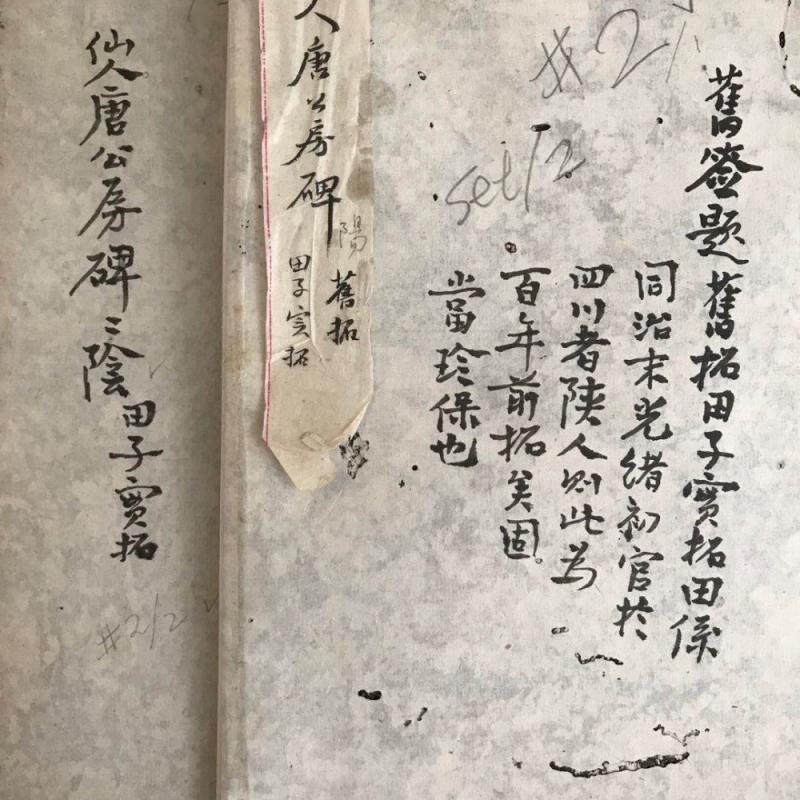 舊簽題舊拓田子實拓田係
同治末光緒初官於
四川者陝人則此為
百年前拓矣固
當珍保也
人唐公房碑陽
舊拓
田子实拓
仙人唐公房碑之陰
田子實拓
set/2
#2/2